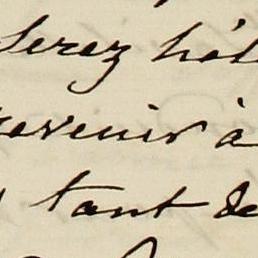 serez hél
revenir à
tant de